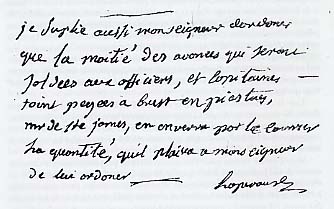 je suplie aussi monseigneur dordoner
que la moitié des avances qui seront
soldées aux officiers, et Capitaines
soint payées a brest en piastres,
mr de ste james, en enverra par le Courier
la quantité, quil plaira a monseigneur
de lui ordoner